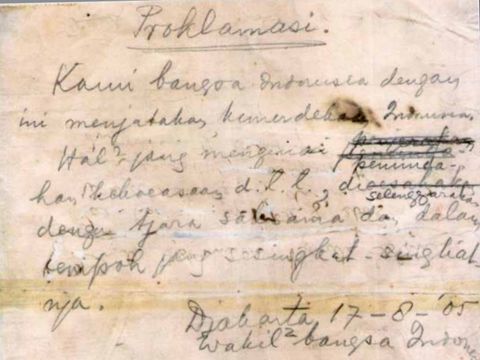 Proklamasi.
Kami bangsa Indonesia dengan
ini menjatakan kemerdekaan Indonesia.
Hal² jang mengenai
peminda-
han kekoeasaan d.l.l., diselenggarakan
dengan tjara seksama dan dalam
tempoh jang sesingkat-singkat-
nja.
Djakarta 17-8-'05
Wakil² bangsa Indonesia